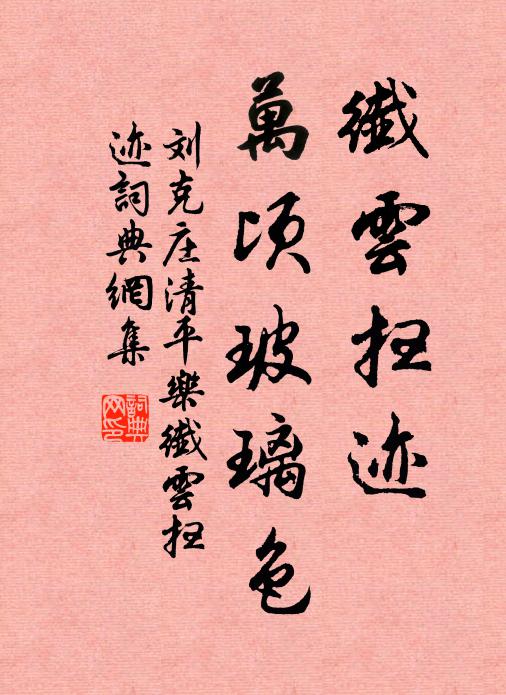 纖雲扫迹
萬顷玻璃色
刘克庄清平樂纖雲扫
迹詞典網集
詞典
网印